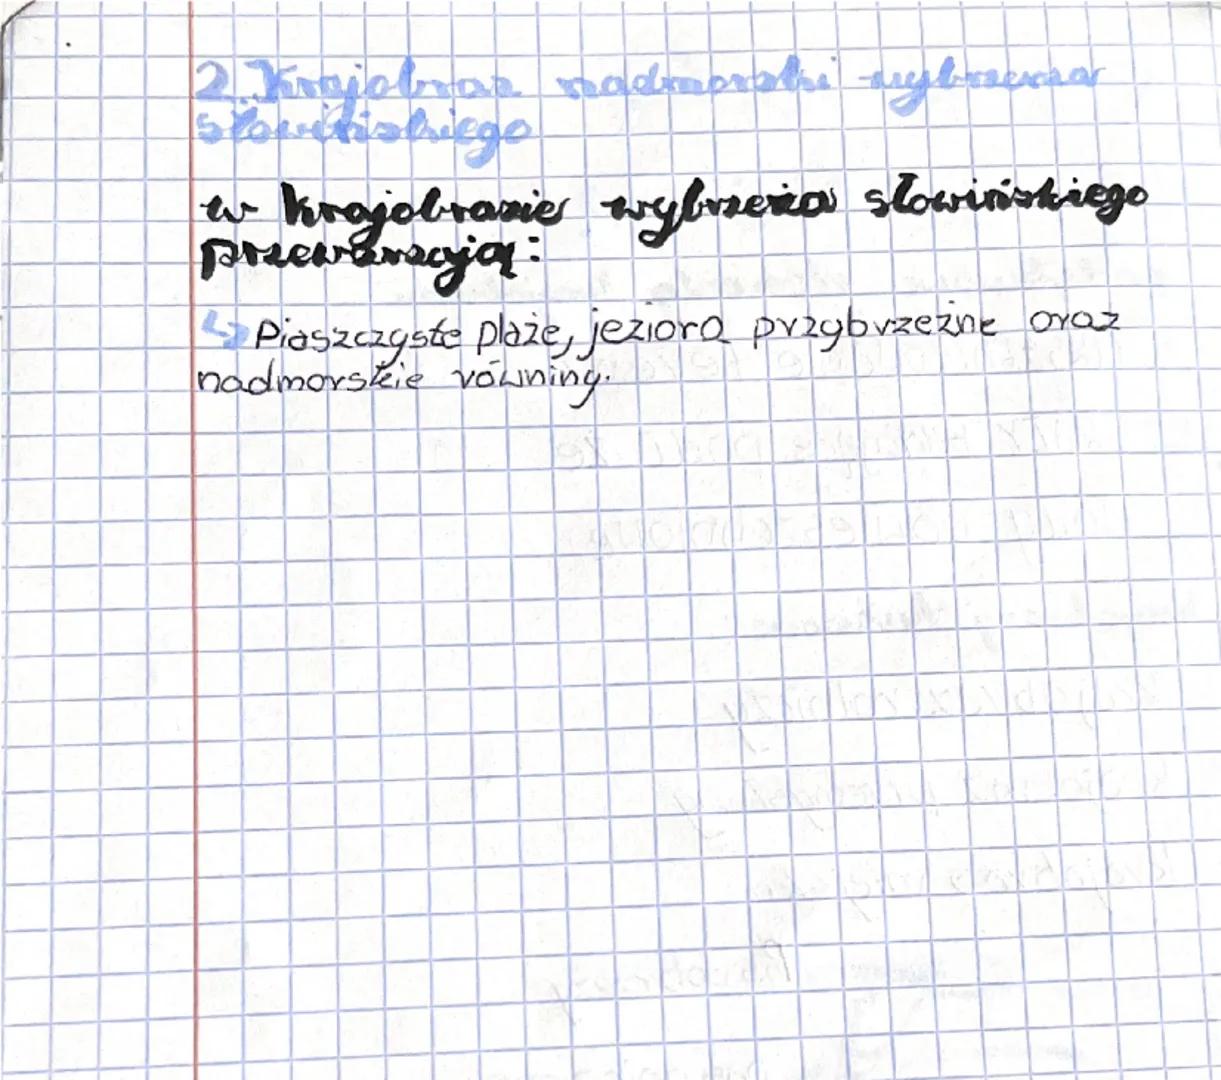 2. Krajobraz nadmorski wybrzeża
słowińskiego
w krajobrazie wybrzeża słowińskiego
przeważają:
↳ Piaszczyste plaże, jeziora przybrzeżne oraz
nadmorskie równiny.